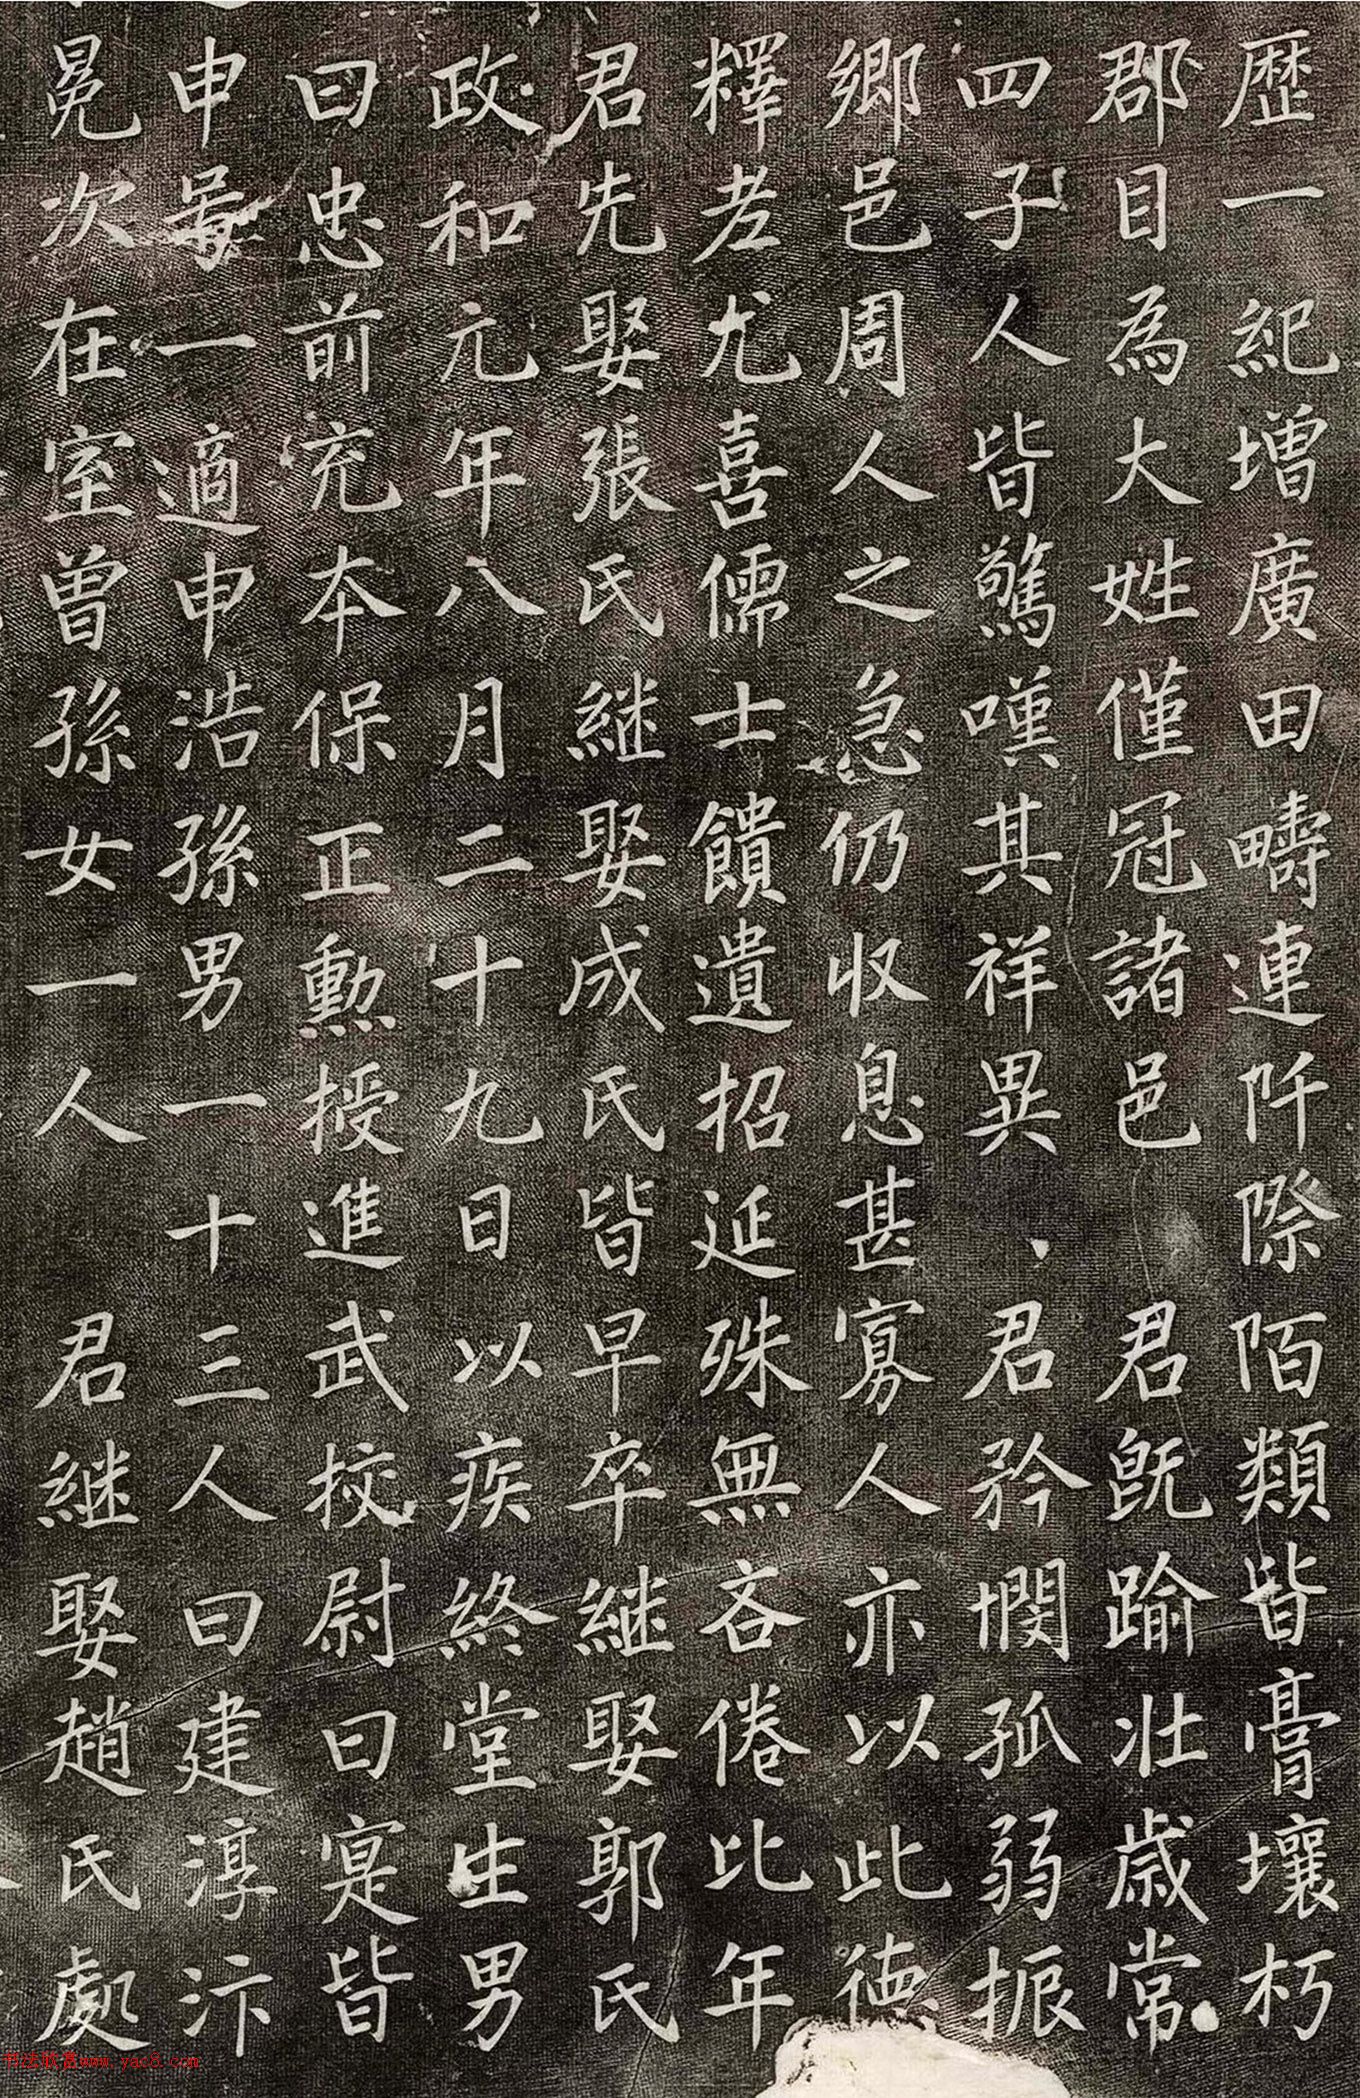 歷一紀增廣田疇連阡際陌類皆膏壤朽
郡目為大姓僅冠諸邑君既踰壯歲常
四子人皆驚嘆其祥異君矜憫孤弱振
鄉邑周人之急仍收息甚寡人亦以此德
釋老尤喜儒士饋遺招延殊無吝倦比年
君先娶張氏継娶成氏皆早卒継娶郭氏
政和元年八月二十九日以疾終堂生男
曰忠前充本保正勲授進武挍尉曰寔皆
申昺一適申浩孫男一十三人曰建淳汴
晃次在室曾孫女一人君継娶趙氏處
书法欣赏www.yac8.com